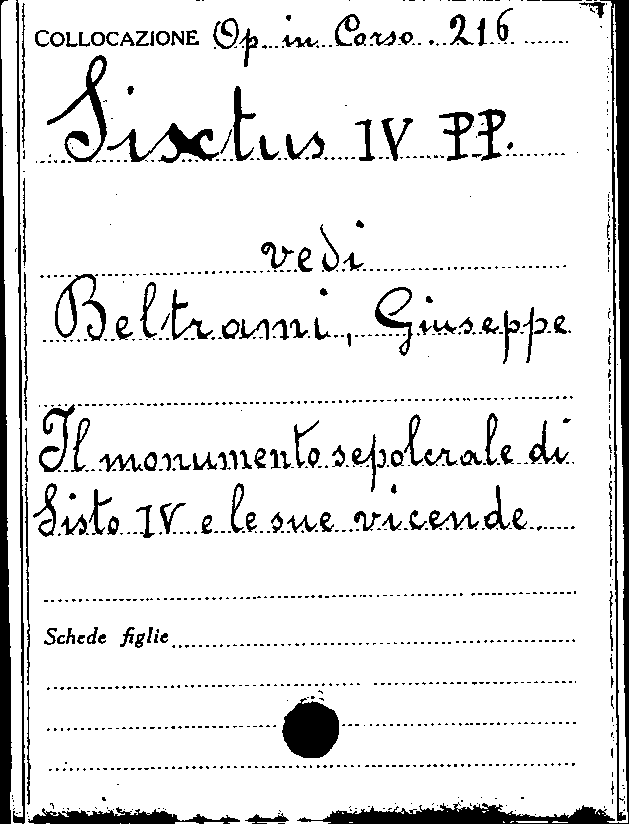 COLLOCAZIONE Op. in Corso. 216
Sixtus IV PP.
vedi
Beltrami, Giuseppe
Il monumento sepolcrale di
Sisto IV e le sue vicende.
Schede figlie